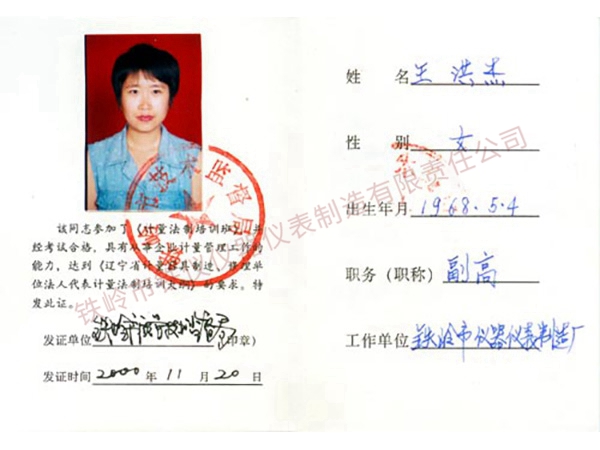 该同志参加了《计量法制培训班》，并
经考试合格，具有从事企业计量管理工作的
能力，达到《辽宁省计量器具制造、修理单
位法人代表计量法制培训大纲》的要求。特
发此证。
发证单位 铁岭市 技术监督局 (印章)
发证时间 2000 年 11 月 20 日
姓 名 王洪杰
性 别 女
出生年月 1968.5.4
职务（职称） 副高
工作单位 铁岭市仪器仪表制造厂
技术监督局
铁岭市 仪器仪表制造有限责任公司